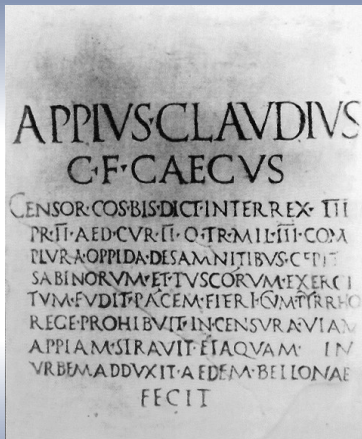 APPIVS·CLAVDIVS
C·F·CAECVS
CENSOR·COS·BIS·DICT·INTERREX·III
PR·II·AED·CVR·II·Q·TR·MIL·III·COM
PLVRA·OPPIDA·DE·SAMNITIBVS·CEPIT
SABINORVM·ET·TVSCORVM·EXERCI
TVM·FVDIT·PACEM·FIERI·CVM·PYRRHO
REGE·PROHIBVIT·IN·CENSVRA·VIAM
APPIAM·STRAVIT·ET·AQVAM·IN
VRBEM·ADDVXIT·AEDEM·BELLONAE
FECIT